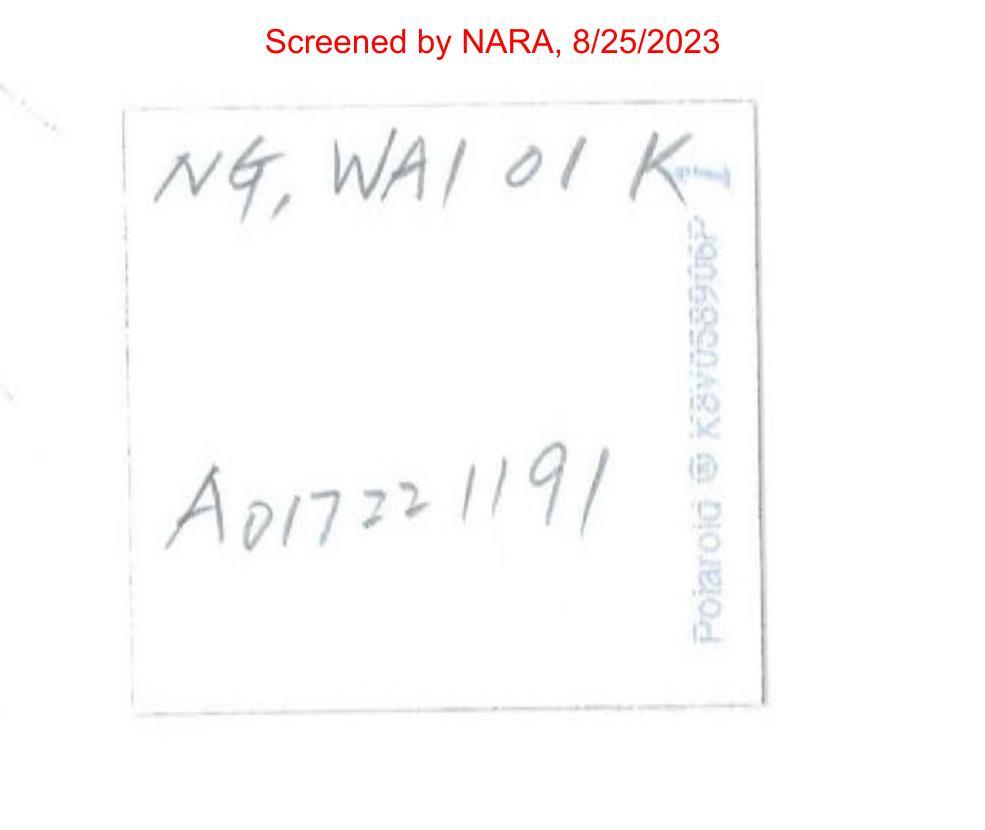 Screened by NARA, 8/25/2023
NG, WAI OI K
A017221191
Polaroid ® K8V058906P